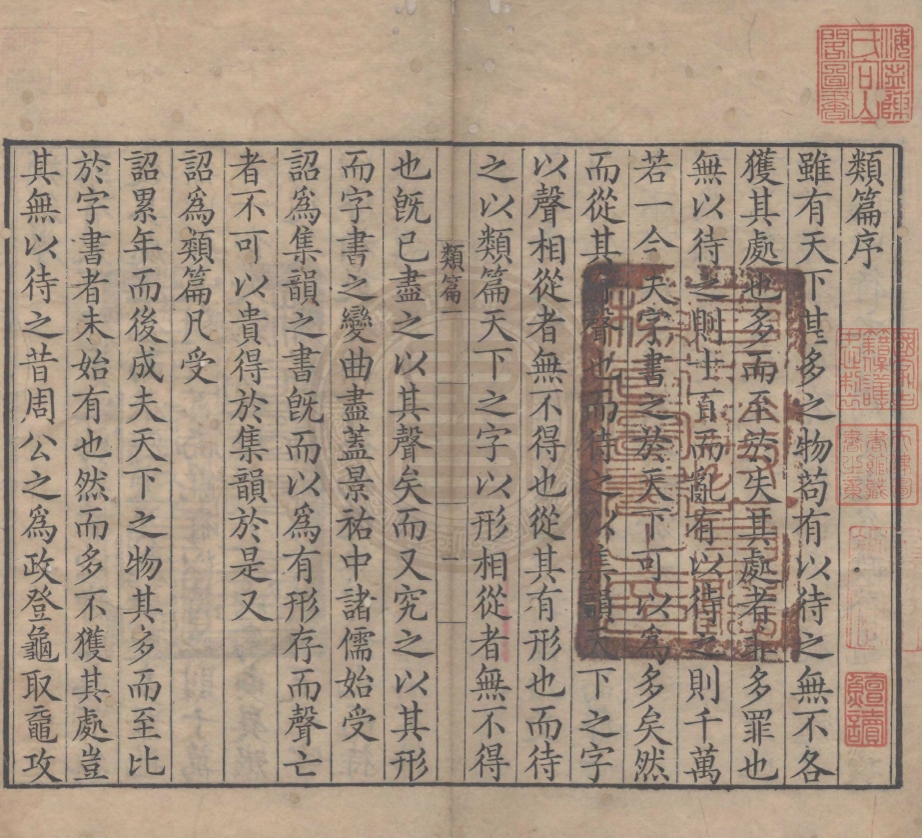 類篇序
雖有天下甚多之物苟有以待之無不各
獲其處也多而至於失其處者非多罪也
無以待之則十百而亂有以待之則千萬
若一今夫字書之於天下可以為多矣然
而從其有聲也而待之以集韻天下之字
以聲相從者無不得也從其有形也而待
之以類篇天下之字以形相從者無不得
類篇一
一
也旣已盡之以其聲矣而又究之以其形
而字書之變曲盡蓋景祐中諸儒始受
詔為集韻之書旣而以為有形存而聲亡
者不可以貴得於集韻於是又
詔為類篇凡受
詔累年而後成夫天下之物其多而至比
於字書者未始有也然而多不獲其處豈
其無以待之昔周公之為政登龜取黿攻